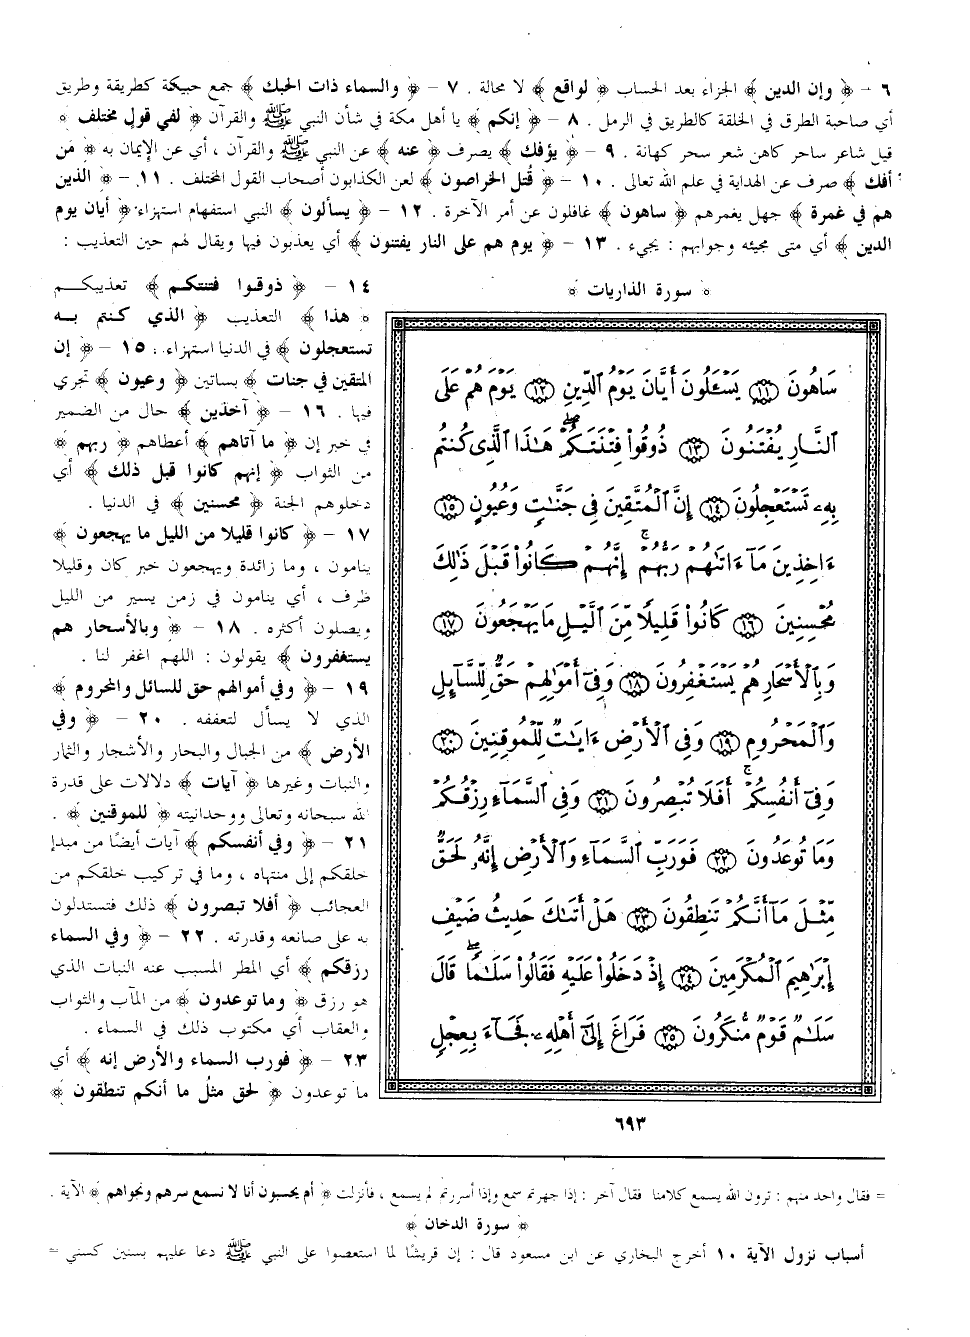 ٦ - ﴿ وإن الدين ﴾ الجزاء بعد الحساب ﴿ لواقع ﴾ لا محالة . ٧ - ﴿ والسماء ذات الحبك ﴾ جمع حبيكة كطريقة وطريق
أي صاحبة الطرق في الخلقة كالطريق في الرمل . ٨ - ﴿ إنكم ﴾ يا أهل مكة في شأن النبي ﷺ والقرآن ﴿ لفي قول مختلف ﴾
قيل شاعر ساحر كاهن شعر سحر كهانة . ٩ - ﴿ يؤفك ﴾ يصرف ﴿ عنه ﴾ عن النبي ﷺ والقرآن ، أي عن الإيمان به ﴿ مَن
أفك ﴾ صرف عن الهداية في علم الله تعالى . ١٠ - ﴿ قُتل الخراصون ﴾ لعن الكذابون أصحاب القول المختلف . ١١ - ﴿ الذين
هم في غمرة ﴾ جهل يغمرهم ﴿ ساهون ﴾ غافلون عن أمر الآخرة . ١٢ - ﴿ يسألون ﴾ النبي استفهام استهزاء ﴿ أيان يوم
الدين ﴾ أي متى مجيئه وجوابهم : يجيء . ١٣ - ﴿ يوم هم على النار يفتنون ﴾ أي يعذبون فيها ويقال لهم حين التعذيب :
﴿ سورة الذاريات ﴾
سَاهُونَ ١١ يَسْـَٔلُونَ أَيَّانَ يَوْمُ ٱلدِّينِ ١٢ يَوْمَ هُمْ عَلَى
ٱلنَّارِ يُفْتَنُونَ ١٣ ذُوقُوا۟ فِتْنَتَكُمْ هَـٰذَا ٱلَّذِى كُنتُم
بِهِۦ تَسْتَعْجِلُونَ ١٤ إِنَّ ٱلْمُتَّقِينَ فِى جَنَّـٰتٍ وَعُيُونٍ ١٥
ءَاخِذِينَ مَآ ءَاتَىٰهُمْ رَبُّهُمْ ۚ إِنَّهُمْ كَانُوا۟ قَبْلَ ذَٰلِكَ
مُحْسِنِينَ ١٦ كَانُوا۟ قَلِيلًا مِّنَ ٱلَّيْلِ مَا يَهْجَعُونَ ١٧
وَبِٱلْأَسْحَارِ هُمْ يَسْتَغْفِرُونَ ١٨ وَفِىٓ أَمْوَٰلِهِمْ حَقٌّ لِّلسَّآئِلِ
وَٱلْمَحْرُومِ ١٩ وَفِى ٱلْأَرْضِ ءَايَـٰتٌ لِّلْمُوقِنِينَ ٢٠
وَفِىٓ أَنفُسِكُمْ ۚ أَفَلَا تُبْصِرُونَ ٢١ وَفِى ٱلسَّمَآءِ رِزْقُكُمْ
وَمَا تُوعَدُونَ ٢٢ فَوَرَبِّ ٱلسَّمَآءِ وَٱلْأَرْضِ إِنَّهُۥ لَحَقٌّ
مِّثْلَ مَآ أَنَّكُمْ تَنطِقُونَ ٢٣ هَلْ أَتَىٰكَ حَدِيثُ ضَيْفِ
إِبْرَٰهِيمَ ٱلْمُكْرَمِينَ ٢٤ إِذْ دَخَلُوا۟ عَلَيْهِ فَقَالُوا۟ سَلَـٰمًا ۖ قَالَ
سَلَـٰمٌ قَوْمٌ مُّنكَرُونَ ٢٥ فَرَاغَ إِلَىٰٓ أَهْلِهِۦ فَجَآءَ بِعِجْلٍ
٦٩٣
١٤ - ﴿ ذوقوا فتنتكم ﴾ تعذيبكم
﴿ هذا ﴾ التعذيب ﴿ الذي كنتم به
تستعجلون ﴾ في الدنيا استهزاء . ١٥ - ﴿ إن
المتقين في جنات ﴾ بساتين ﴿ وعيون ﴾ تجري
فيها . ١٦ - ﴿ آخذين ﴾ حال من الضمير
في خبر إن ﴿ ما آتاهم ﴾ أعطاهم ﴿ ربهم ﴾
من الثواب ﴿ إنهم كانوا قبل ذلك ﴾ أي
دخلوهم الجنة ﴿ محسنين ﴾ في الدنيا .
١٧ - ﴿ كانوا قليلا من الليل ما يهجعون ﴾
ينامون ، وما زائدة ويهجعون خبر كان وقليلا
ظرف ، أي ينامون في زمن يسير من الليل
ويصلون أكثره . ١٨ - ﴿ وبالأسحار هم
يستغفرون ﴾ يقولون : اللهم اغفر لنا .
١٩ - ﴿ وفي أموالهم حق للسائل والمحروم ﴾
الذي لا يسأل لتعففه . ٢٠ - ﴿ وفي
الأرض ﴾ من الجبال والبحار والأشجار والثمار
والنبات وغيرها ﴿ آيات ﴾ دلالات على قدرة
الله سبحانه وتعالى ووحدانيته ﴿ للموقنين ﴾ .
٢١ - ﴿ وفي أنفسكم ﴾ آيات أيضًا من مبدإ
خلقكم إلى منتهاه ، وما في تركيب خلقكم من
العجائب ﴿ أفلا تبصرون ﴾ ذلك فتستدلون
به على صانعه وقدرته . ٢٢ - ﴿ وفي السماء
رزقكم ﴾ أي المطر المسبب عنه النبات الذي
هو رزق ﴿ وما توعدون ﴾ من المآب والثواب
والعقاب أي مكتوب ذلك في السماء .
٢٣ - ﴿ فورب السماء والأرض إنه ﴾ أي
ما توعدون ﴿ لحق مثلُ ما أنكم تنطقون ﴾
= فقال واحد منهم : ترون الله يسمع كلامنا فقال آخر : إذا جهرتم سمع وإذا أسررتم لم يسمع ، فأنزلت ﴿ أم يحسبون أنا لا نسمع سرهم ونجواهم ﴾ الآية .
﴿ سورة الدخان ﴾
أسباب نزول الآية ١٠ أخرج البخاري عن ابن مسعود قال : إن قريشًا لما استعصوا على النبي ﷺ دعا عليهم بسنين كسني =